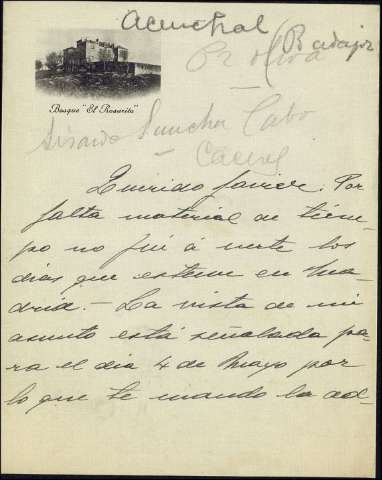 Aceuchal
(Badajoz
Bosque "El Rosarito"
Sanchez Cabo
Caceres
Querido Javier: Por
falta material de tiem-
po no fui á verte los
dias que estuve en Ma-
drid.- La vista de mi
asunto está señalada pa-
ra el dia 4 de Mayo por
lo que te mando la ad-